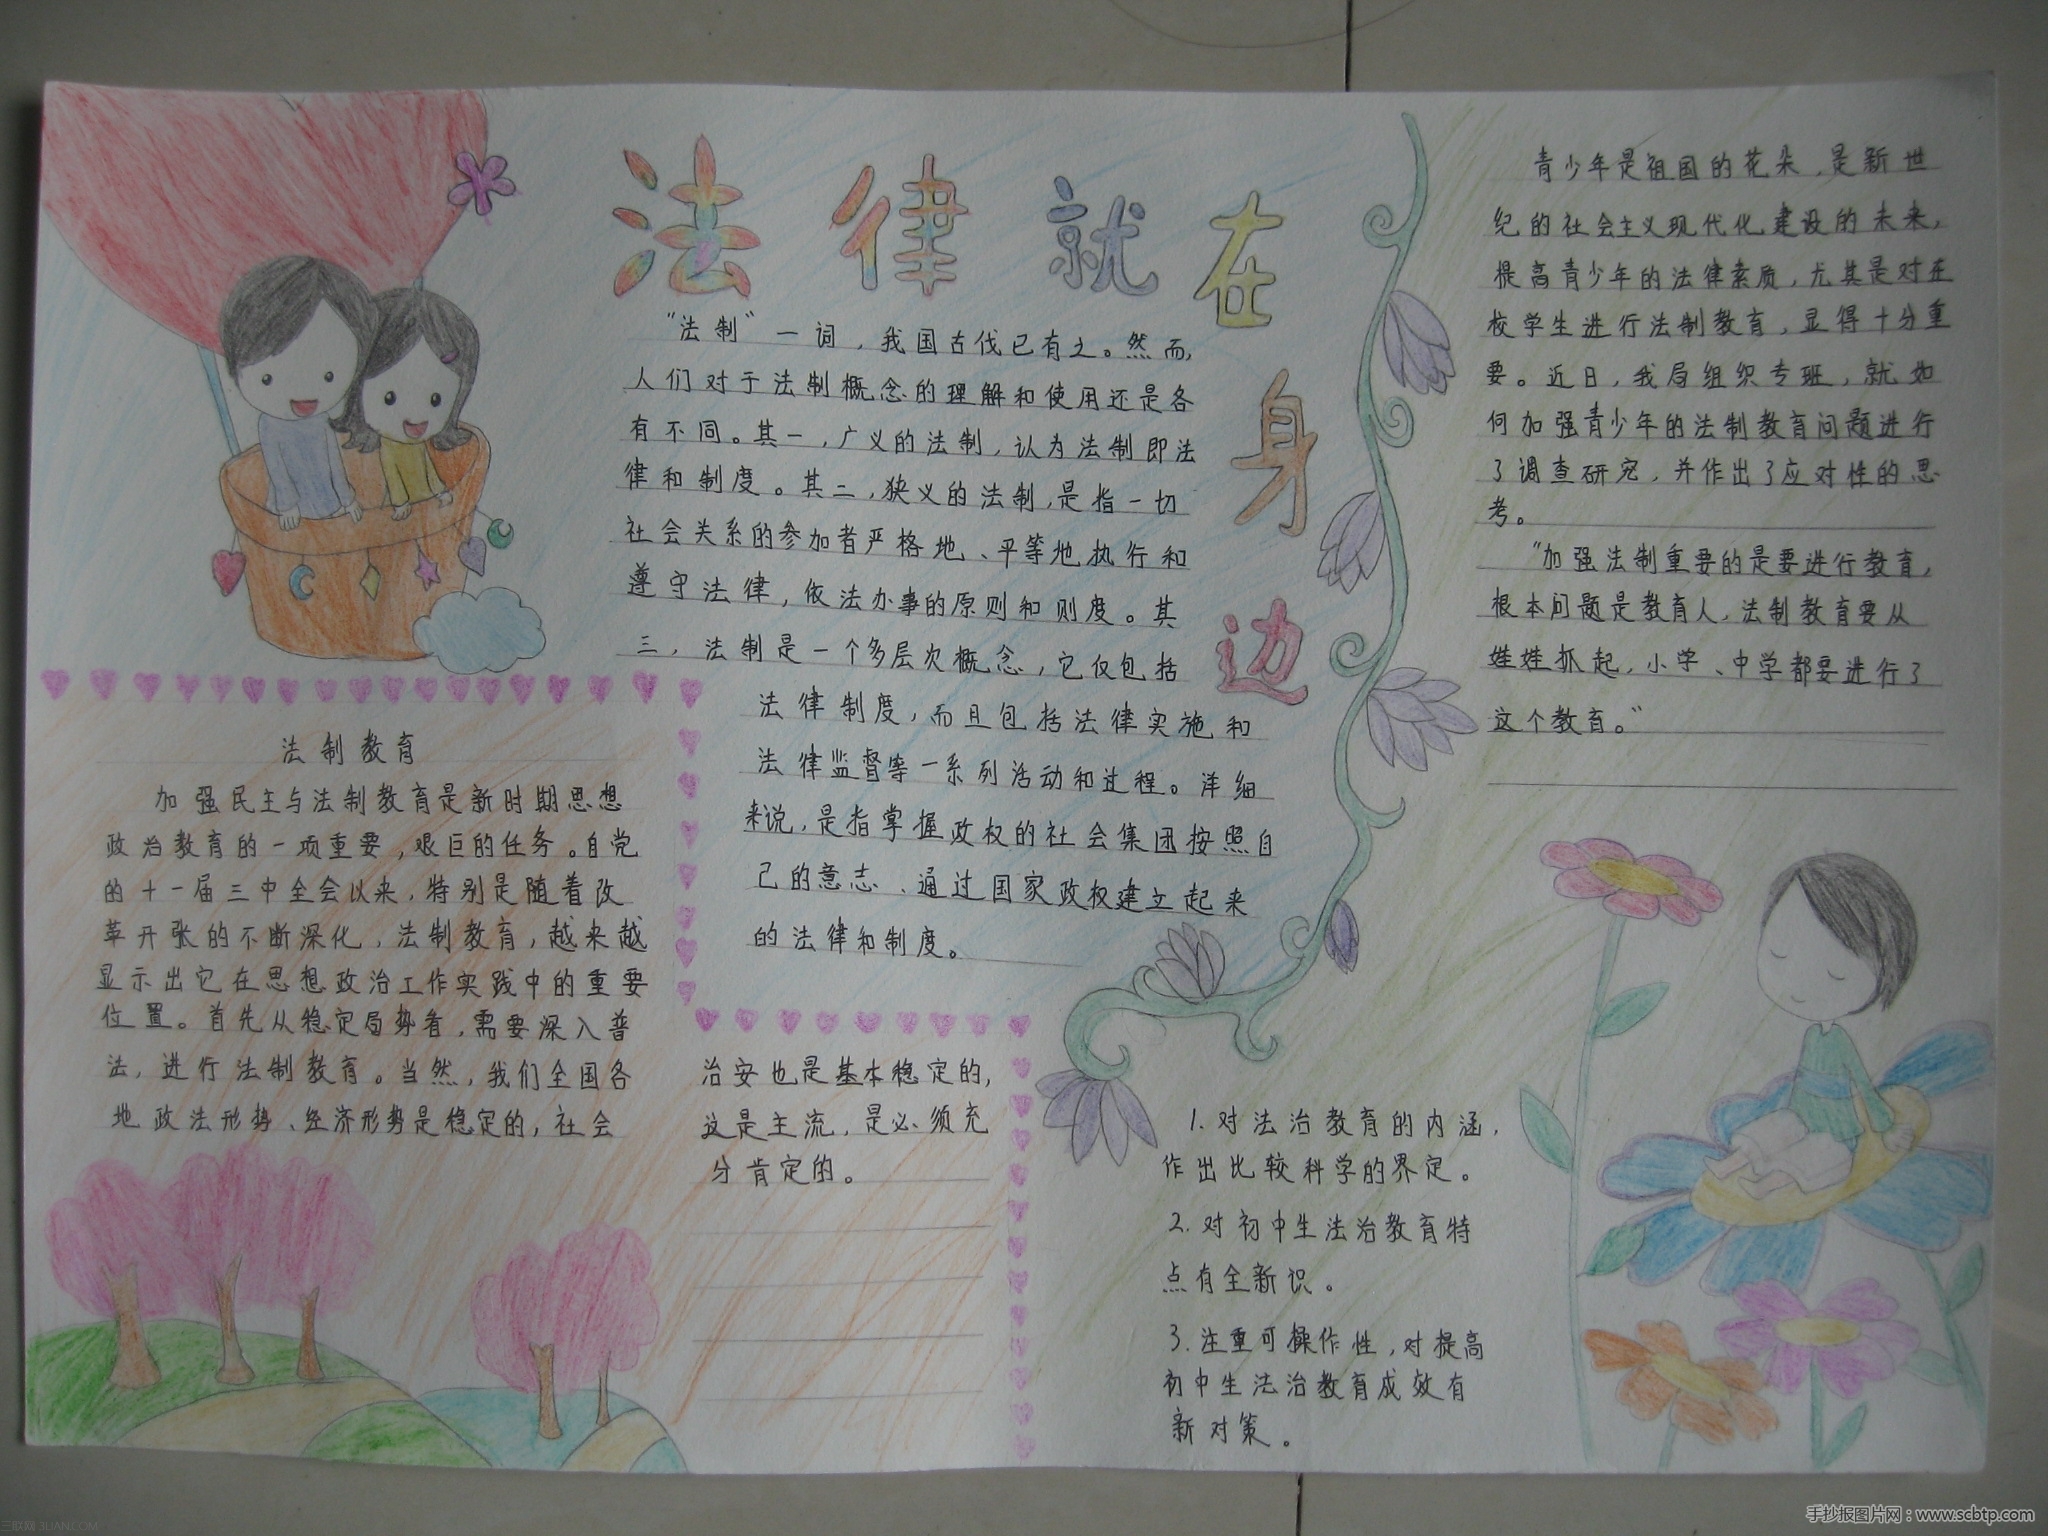 法律就在身边
“法制”一词，我国古代已有之。然而，
人们对于法制概念的理解和使用还是各
有不同。其一，广义的法制，认为法制即法
律和制度。其二，狭义的法制，是指一切
社会关系的参加者严格地、平等地执行和
遵守法律，依法办事的原则和则度。其
三，法制是一个多层次概念，它仅包括
法律制度，而且包括法律实施和
法律监督等一系列活动和过程。详细
来说，是指掌握政权的社会集团按照自
己的意志、通过国家政权建立起来
的法律和制度。
法制教育
加强民主与法制教育是新时期思想
政治教育的一项重要，艰巨的任务。自党
的十一届三中全会以来，特别是随着改
革开张的不断深化，法制教育，越来越
显示出它在思想政治工作实践中的重要
位置。首先从稳定局势看，需要深入普
法，进行法制教育。当然，我们全国各
地政法形势、经济形势是稳定的，社会
治安也是基本稳定的，
这是主流，是必须充
分肯定的。
青少年是祖国的花朵，是新世
纪的社会主义现代化建设的未来，
提高青少年的法律素质，尤其是对在
校学生进行法制教育，显得十分重
要。近日，我局组织专班，就如
何加强青少年的法制教育问题进行
了调查研究，并作出了应对性的思
考。
“加强法制重要的是要进行教育，
根本问题是教育人，法制教育要从
娃娃抓起，小学、中学都要进行了
这个教育。”
1.对法治教育的内涵，
作出比较科学的界定。
2.对初中生法治教育特
点有全新识。
3.注重可操作性，对提高
初中生法治教育成效有
新对策。
手抄报图片网：www.scbtp.com
三联网 3LIAN.COM